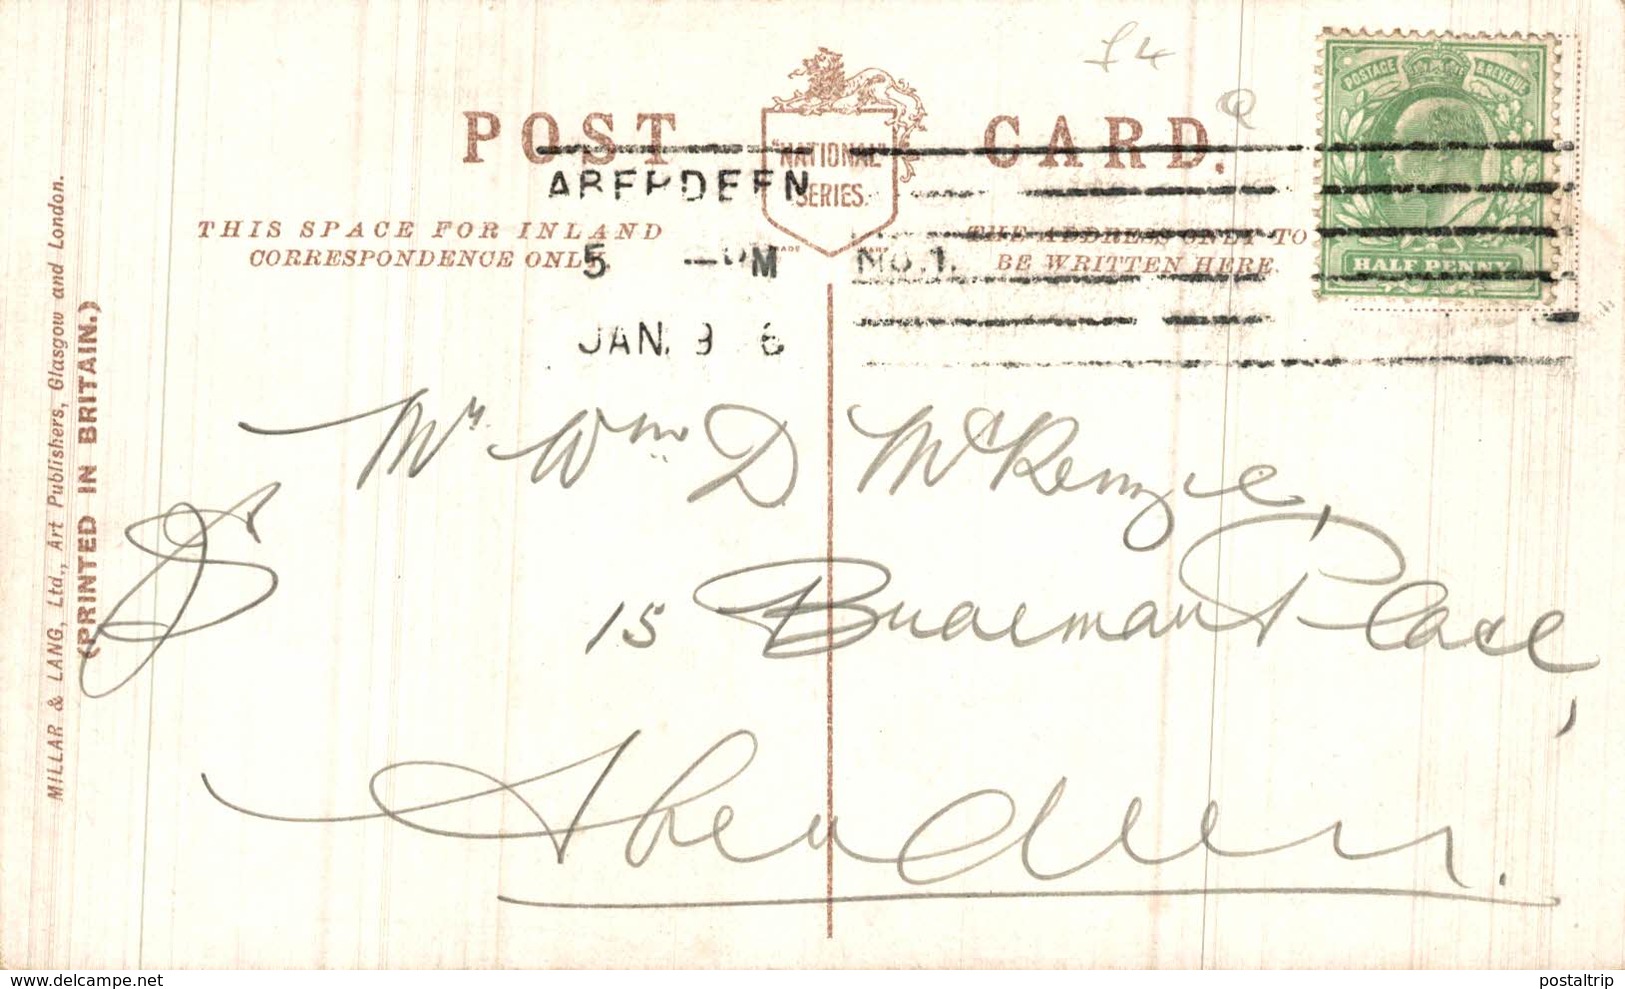 £4
POST CARD.
"NATIONAL"
SERIES.
ABERDEEN
THIS SPACE FOR INLAND
CORRESPONDENCE ONLY.
THE ADDRESS ONLY TO
BE WRITTEN HERE.
TRADE MARK
5 — PM
No. 1.
JAN. 9 6
POSTAGE & REVENUE
HALF PENNY
Mr. Wm D McKenzie,
15 Braemar Place,
Aberdeen.
MILLAR & LANG, Ltd., Art Publishers, Glasgow and London.
(PRINTED IN BRITAIN.)
www.delcampe.net
postaltrip